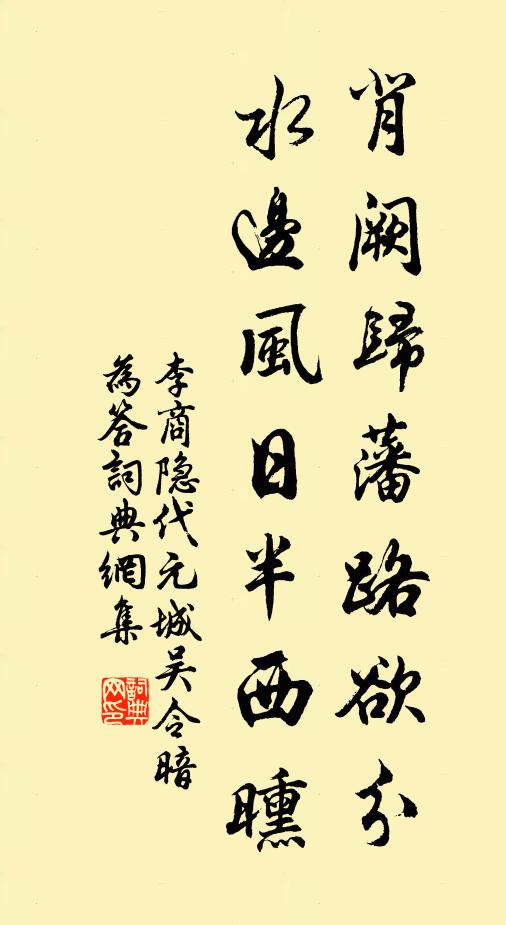 背闕歸藩路欲分
水邊風日半西曛
李商隐代元城吴令暗
為答詞典網集
詞典
网印